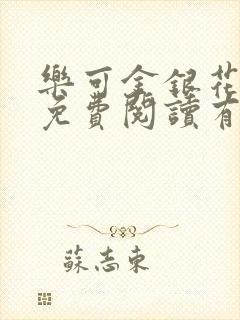 樂可金銀花
免費閱讀有
蘇志東